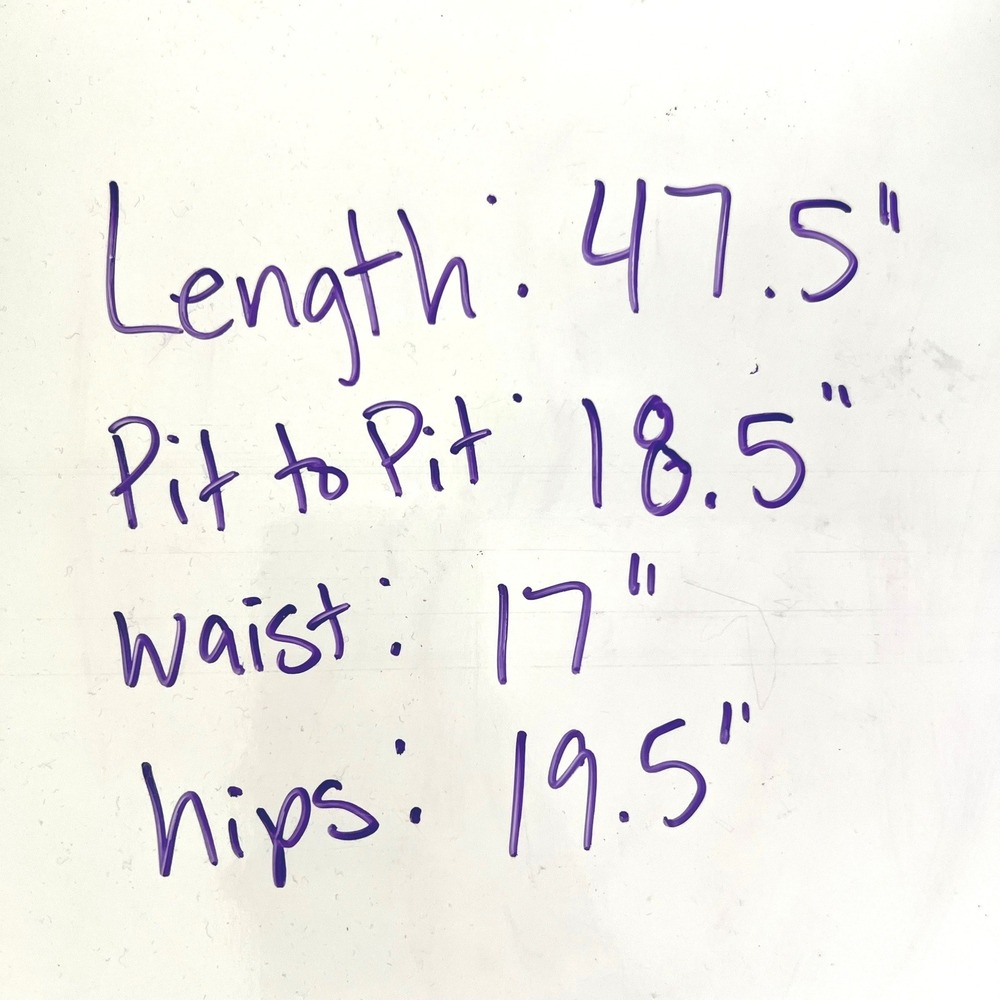 Length: 47.5"
Pit to Pit: 18.5"
waist: 17"
hips: 19.5"